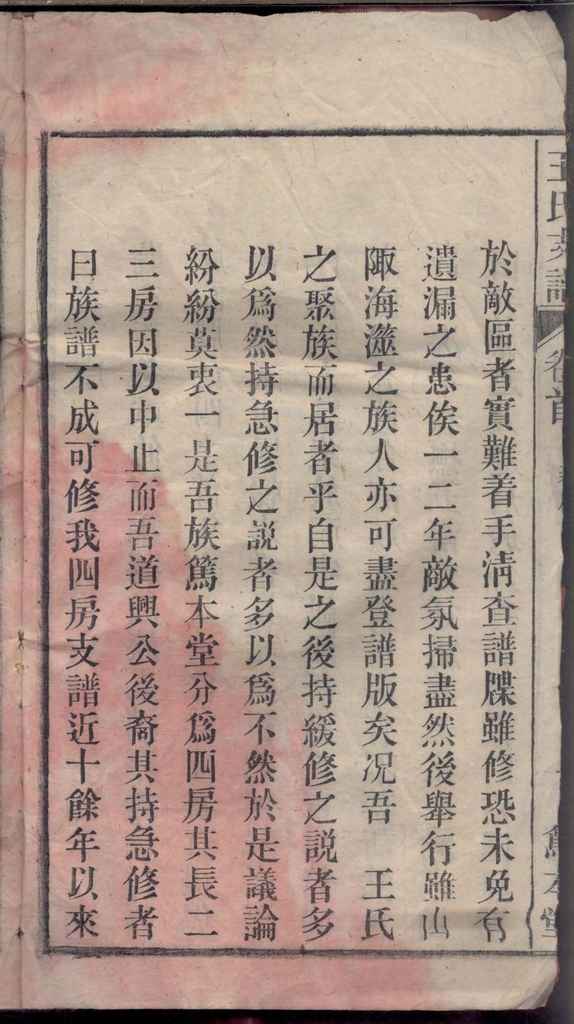 王氏支譜
卷首
於敵區者實難着手淸查譜牒雖修恐未免有
遺漏之患俟一二年敵氛掃盡然後舉行雖山
陬海澨之族人亦可盡登譜版矣况吾 王氏
之聚族而居者乎自是之後持緩修之説者多
以爲然持急修之説者多以爲不然於是議論
紛紛莫衷一是吾族篤本堂分爲四房其長二
三房因以中止而吾道興公後裔其持急修者
曰族譜不成可修我四房支譜近十餘年以來
篤本堂